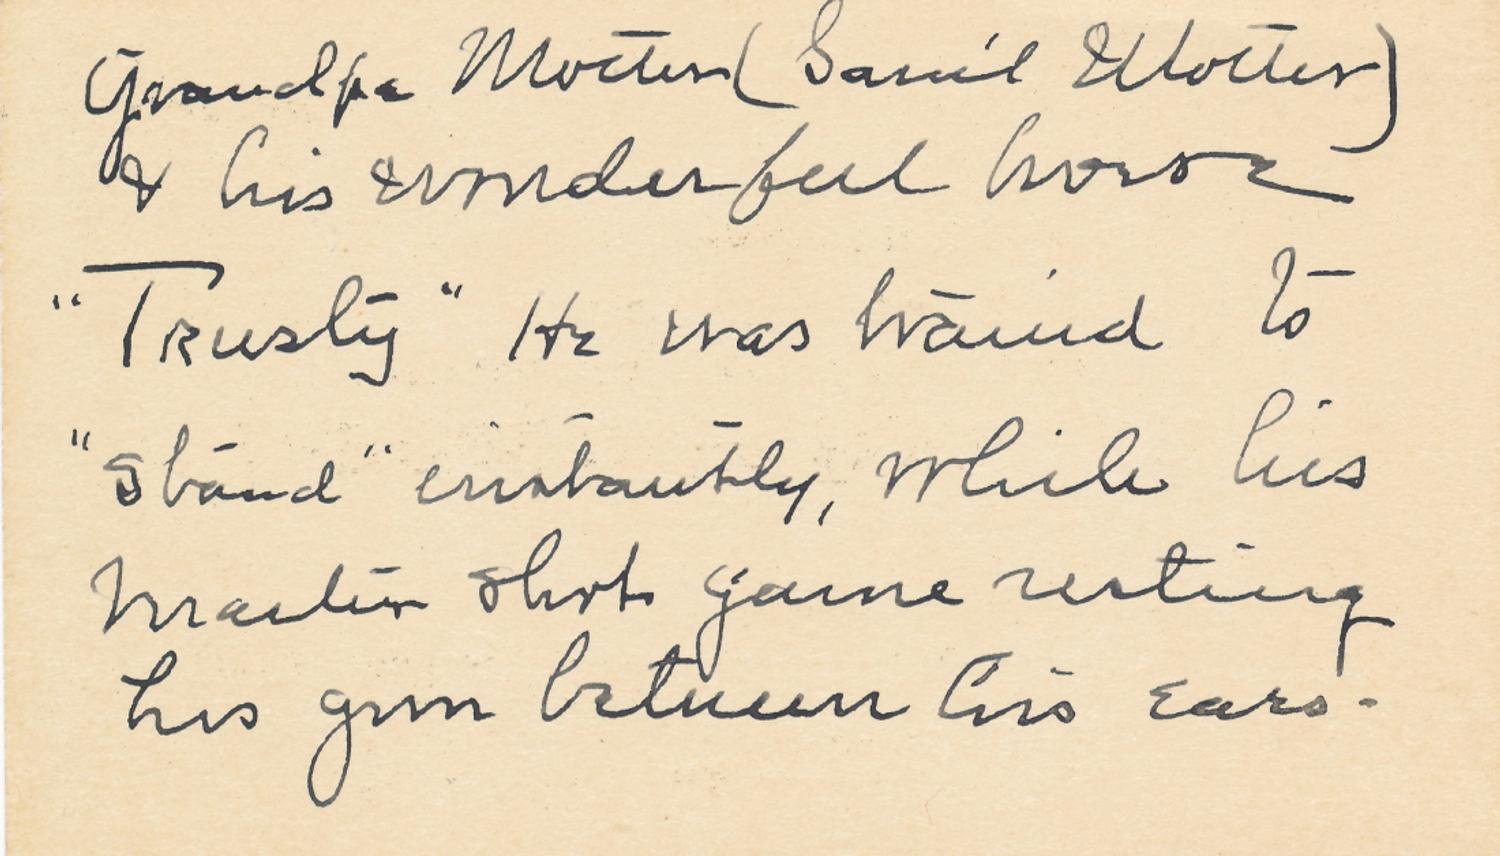 Grandpa Motter (Sam'l Motter)
& his wonderful horse
"Trusty" He was trained to
"stand" instantly, while his
Master shot game resting
his gun between his ears.